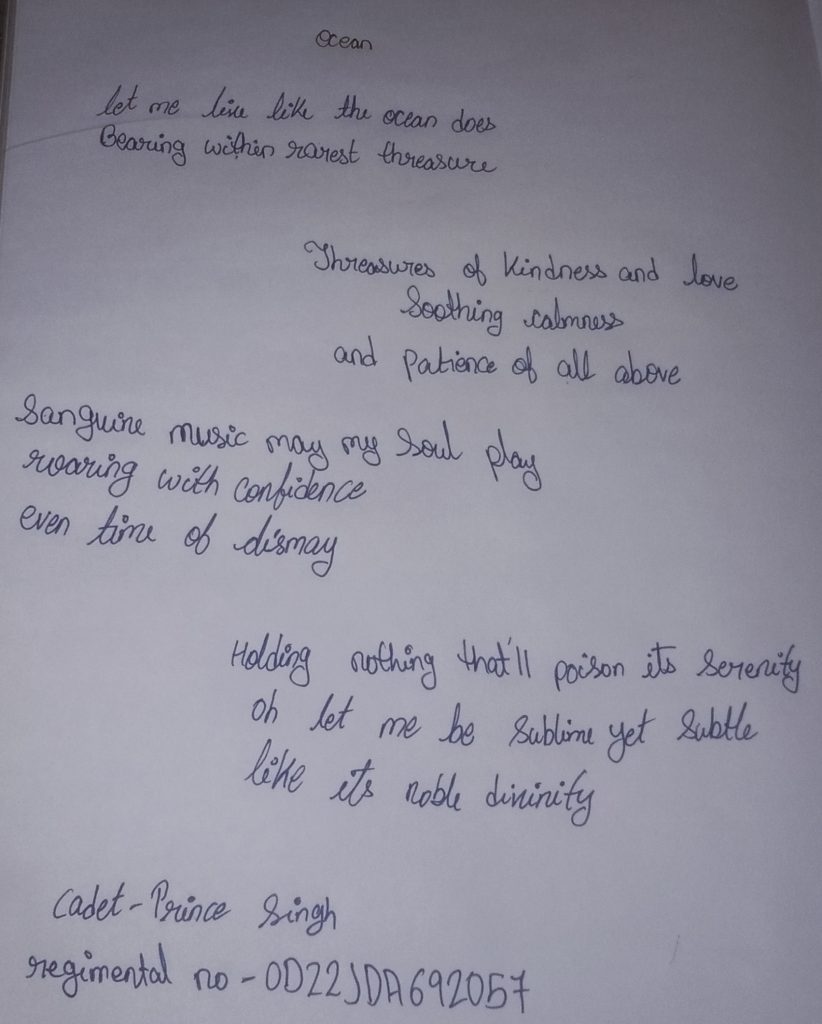 Ocean
let me live like the ocean does
Bearing within rarest threasure
Threasures of kindness and love
Soothing calmness
and patience of all above
Sanguine music may my soul play
roaring with confidence
even time of dismay
Holding nothing that'll poison its serenity
oh let me be sublime yet subtle
like its noble divinity
Cadet-Prince Singh
regimental no - OD22JDA692057